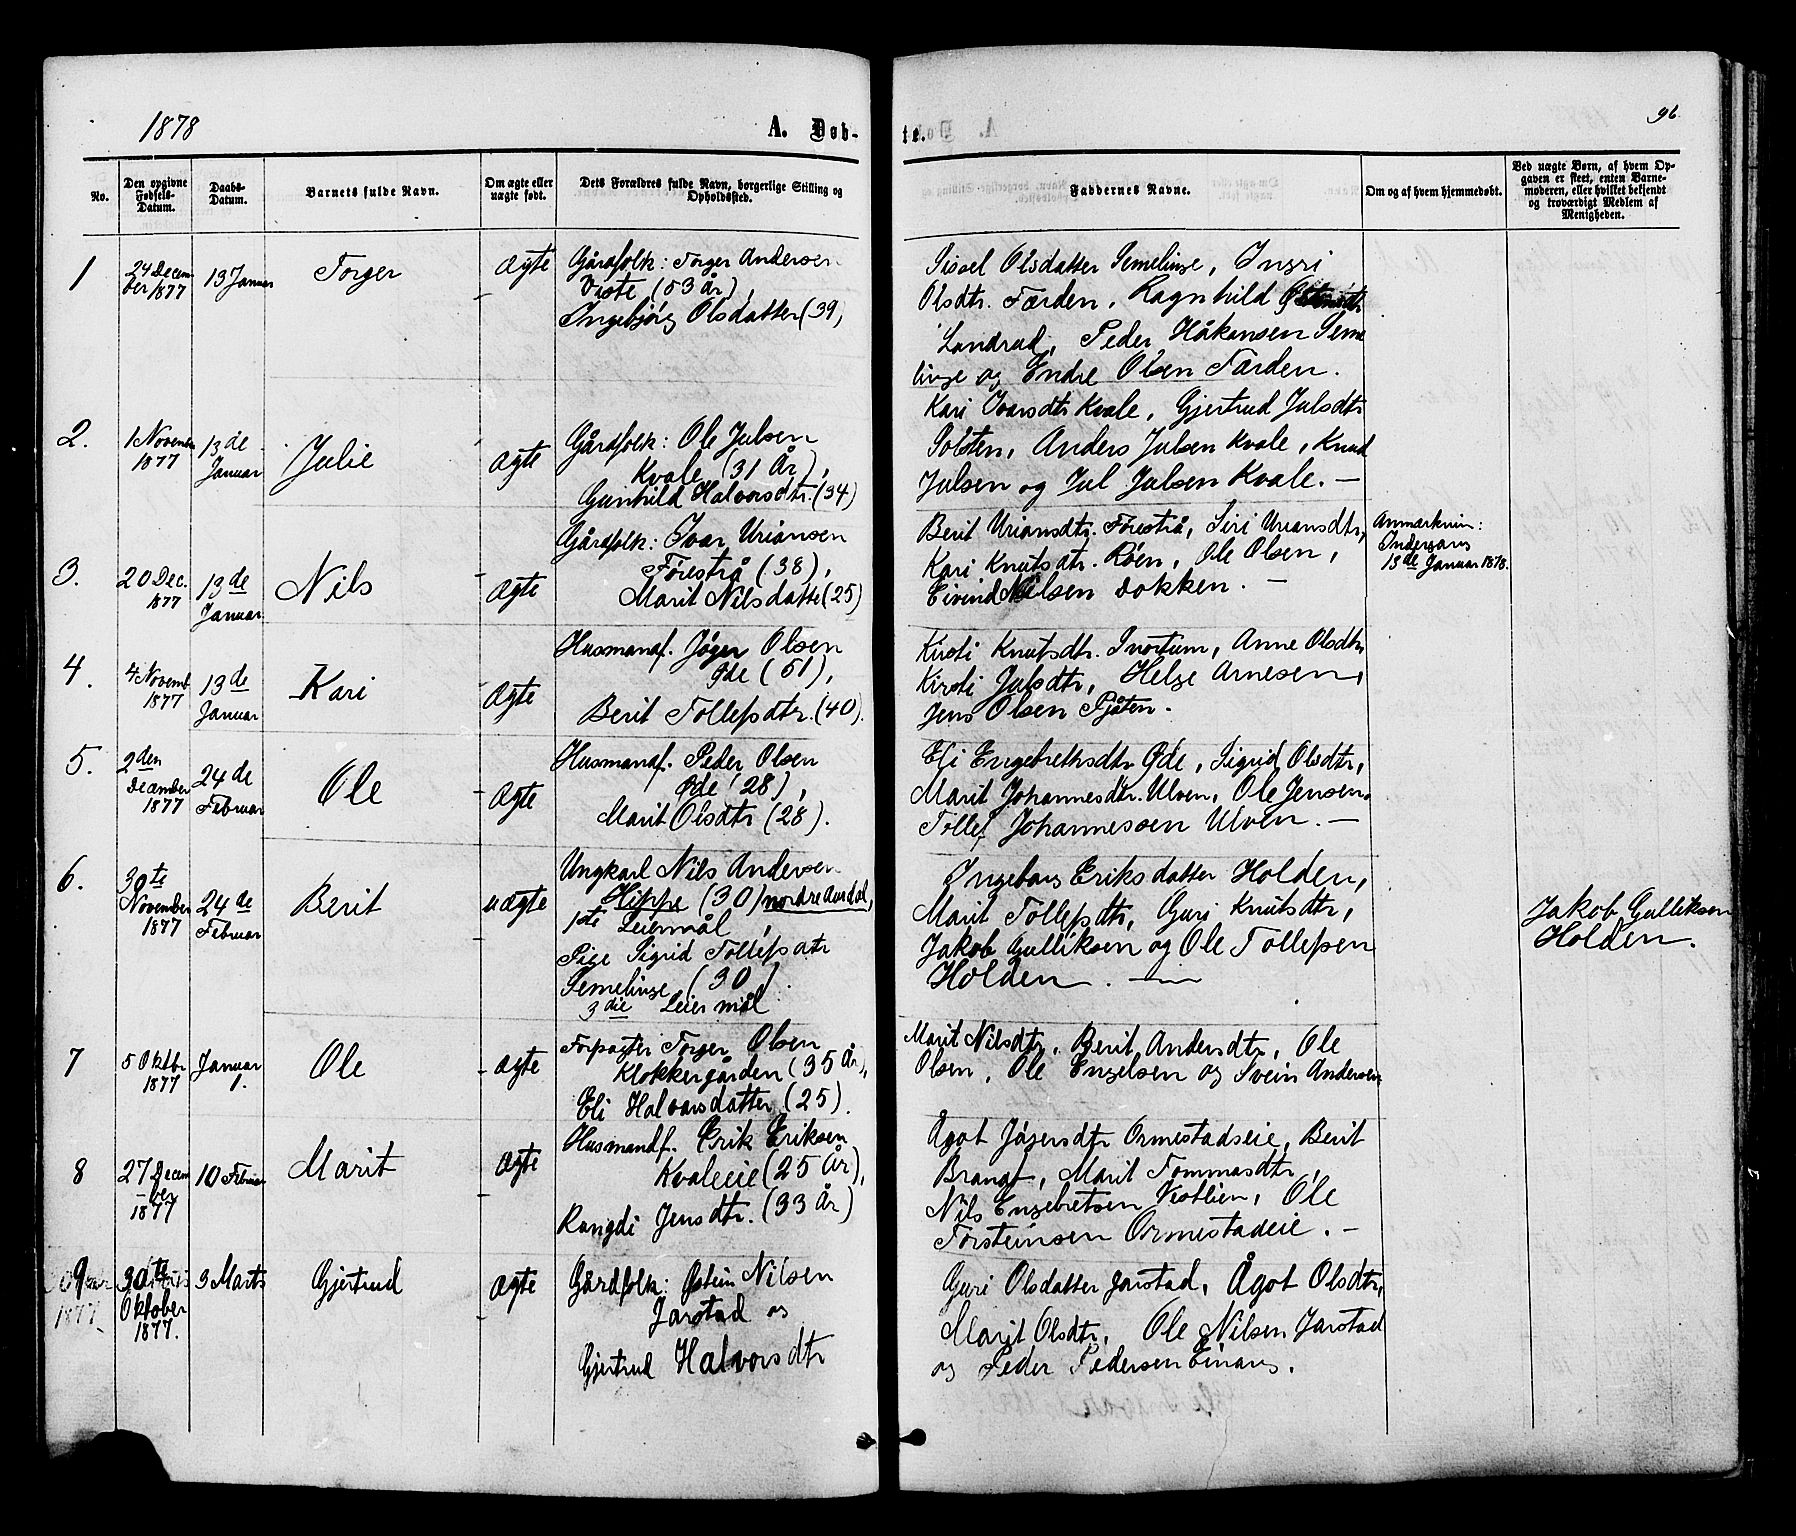 1878
A. Døb-
te.
96
No.
Den opgivne Fødsels-Datum.
Daabs-Datum.
Barnets fulde Navn.
Om ægte eller uægte født.
Dets Forældres fulde Navn, borgerlige Stilling og Opholdssted.
Faddernes Navne.
Om og af hvem hjemmedøbt.
Ved uægte Børn, af hvem Op-
gaven er skeet, enten Barne-
moderen, eller hvilket bekjendt
og troværdigt Medlem af
Menigheden.
1
24 Decem
ber 1877
13 Januar
Torger
Ægte
Gårdfolk: Torger Andersen
Viste (53 år),
Ingebjørg Olsdatter (39)
Sissel Olsdatter Semelinge, Ingri
Olsdtr. Færden, Ragnhild
Landrud, Peder Håkonsen Seme
linge og Endre Olsen Færden.
2.
1 Novemb
1877
13de
Januar
Julie
Ægte
Gårdfolk: Ole Julsen
Kvale (31 År),
Gunhild Halvorsdtr. (34)
Kari Ivarsdtr Kvale, Gjertrud Julsdtr
Solsten, Anders Julsen Kvale, Knud
Julsen og Jul Julsen Kvale. —
3.
20 Dec.
1877
13de
Januar
Nils
Ægte
Gårdfolk: Ivar Uriansen
Førestrå (38),
Marit Nilsdatte (25)
Berit Uriansdtr. Førestrå, Siri Uriansdtr,
Kari Knutsdtr. Røen, Ole Olsen,
Eivind Nilsen Dokken. —
Anmærknin:
Indegang
13de Januar 1878.
4.
4 Novemb.
1877
13de
Januar
Kari
Ægte
Husmandf. Jøger Olsen
Øde (51),
Berit Tollefsdtr. (40).
Kirsti Knutsdtr. Svortum, Anne Olsdtr,
Kirsti Julsdtr, Helge Arnesen,
Jens Olsen Pjåten.
5.
2den
December
1877
24de
Februar
Ole
Ægte
Husmandf. Peder Olsen
Øde (28),
Marit Olsdtr (28).
Eli Engebrethsdtr Øde, Sigrid Olsdtr,
Marit Johannesdtr. Ulven, Ole Jensen,
Tollef Johannessen Ulven. —
6.
30te
November
1877
24de
Februar
Berit
uægte
Ungkarl Nils Andersen
Hippe (30) nordre Aurdal,
1ste Leiermål,
Pige Sigrid Tollefsdtr
Semelinge (30).
3die Leiermål
Ingeborg Eriksdatter Holden,
Marit Tollefsdtr, Guri Knutsdtr,
Jakob Gulliksen og Ole Tollefsen
Holden. —
Jakob Gulliksen
Holden.
7
5 Oktbr
1877
Januar
1.
Ole
Ægte
Forpagter Torger Olsen
Klokkergården (35 År),
Eli Halvorsdatter (25).
Marit Nilsdtr, Berit Andersdtr, Ole
Olsen, Ole Engelsen og Svein Andersen
8
27 Decem
-ber
1877
10 Februar
Marit
Ægte
Husmandf. Erik Eriksen
Kvaleeie (25 År),
Rangdi Jensdtr. (33 År)
Ågot Jøgersdtr Ormestadseie, Berit
Brangf, Marit Tommasdtr,
Nils Engebretsen Vestlien, Ole
Torsteinsen Ormestadeie. —
9
1877
30te
Oktober
1877.
3 Marts
Gjertrud
Ægte
Gårdfolk: Østein Nilsen
Jarstad og
Gjertrud Halvorsdtr
Guri Olsdatter Jarstad, Ågot Olsdtr,
Marit Olsdtr, Ole Nilsen Jarstad
og Peder Pedersen Einang.